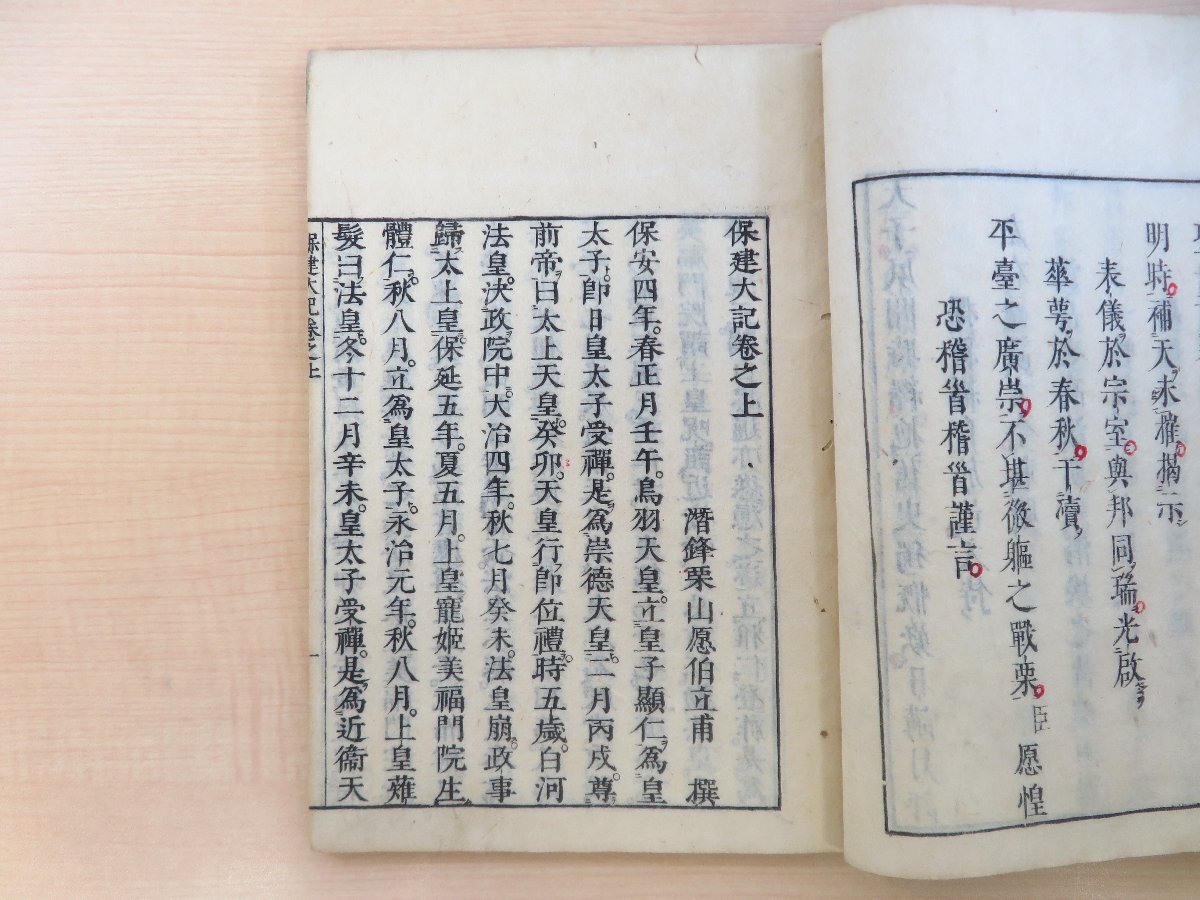 明時。補天未罹。揭示
表儀於宗室。與邦同瑞。光啟
華萼於春秋。干瀆
平臺之廣崇。不堪微軀之戰栗。臣愿惶
恐稽首稽首謹言。
保建大記卷之上
潛鋒栗山愿伯立甫 撰
保安四年。春正月壬午。鳥羽天皇。立皇子顯仁。爲皇
太子。卽日皇太子受禪。是爲崇德天皇。二月丙戌。尊
前帝。曰太上天皇。癸卯。天皇行卽位禮。時五歲。白河
法皇。決政院中。大治四年。秋七月癸未。法皇崩。政事
歸太上皇。保延五年。夏五月。上皇寵姬美福門院生
體仁。秋八月。立爲皇太子。永治元年。秋八月。上皇薙
髮曰法皇。冬十二月辛未。皇太子受禪。是爲近衞天
保建大記卷之上 一